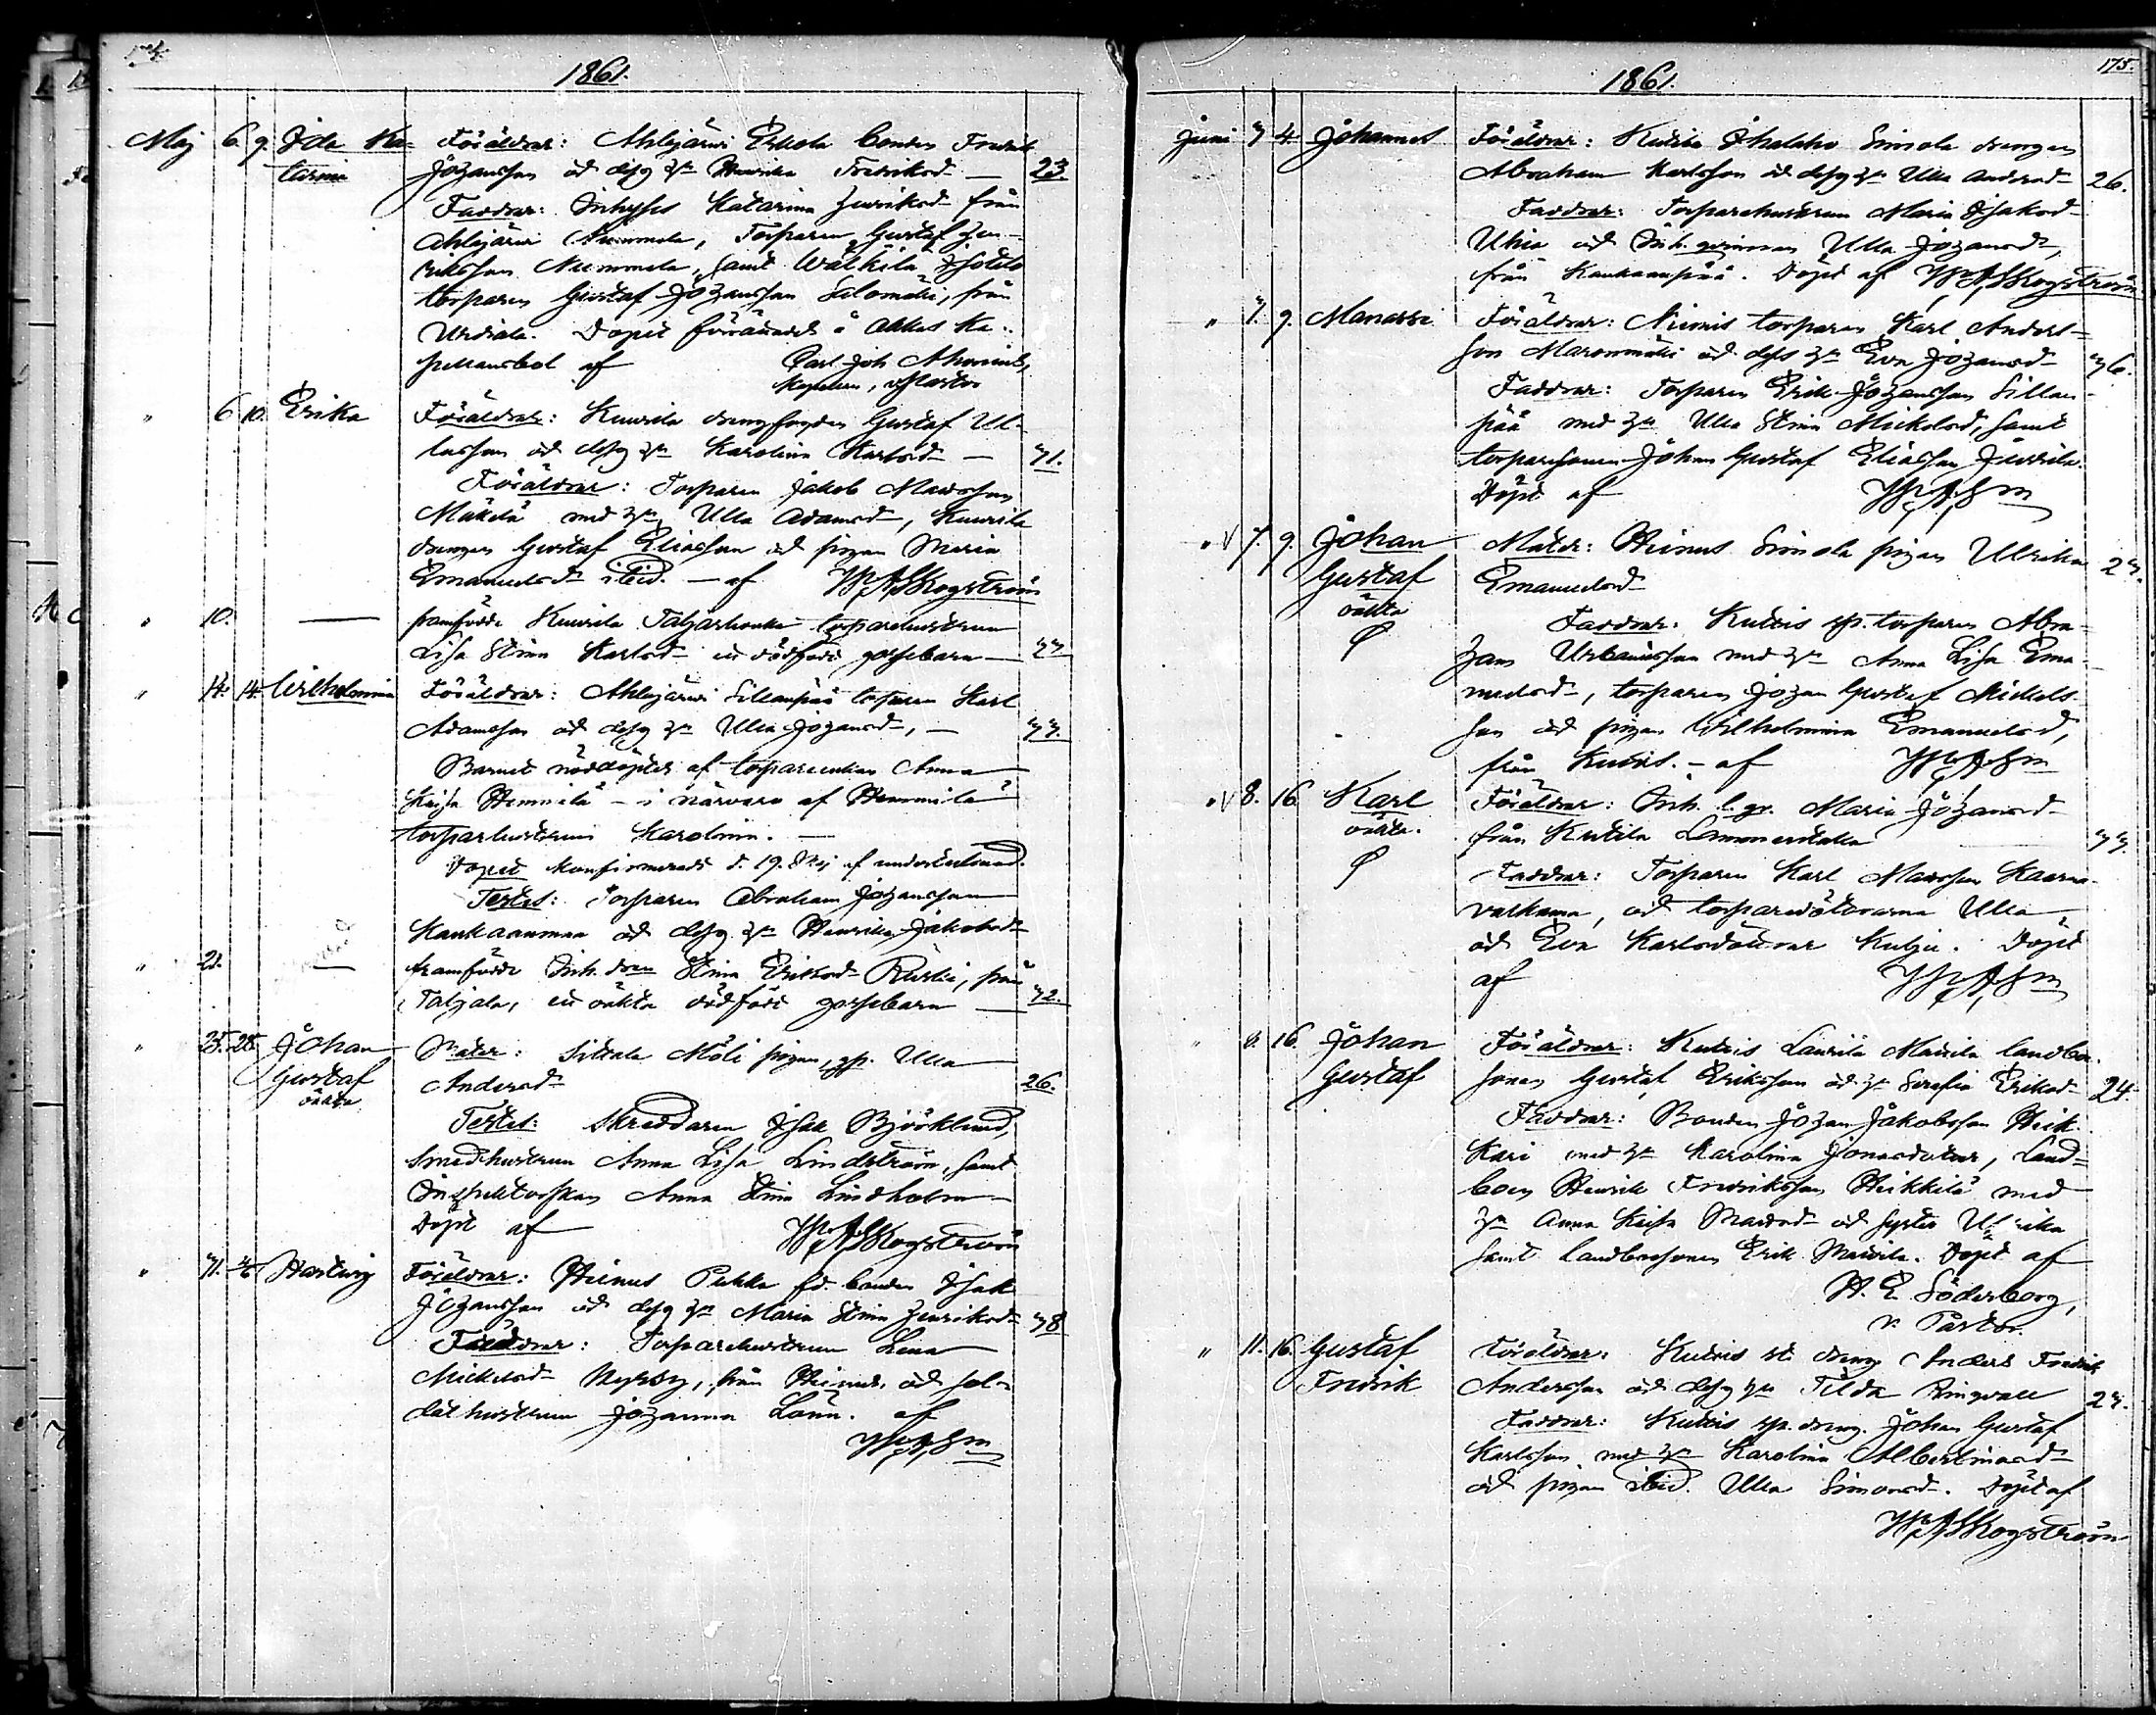 1861.
Maj 6. 9. Ida Ka- Föräldrar: Ahlajärvi Erkola bonden Fredrik
tarina Johansson och dess h:u Henrika Fredriksd 23.
Faddrar: Inhyses Katarina Henriksd från
Ahlajärvi Nummela, Torparen Gustaf Hen-
riksson Nummela, samt Wälkilä
torparen Gustaf Johansson Salomäki, från
Urdiala. Dopet förrättadt å Akkas Ka-
pellansbol af Carl Joh
Kapellan, v. Pastor
" 6. 10. Erika Föräldrar: Kuurila drengfogden Gustaf Ul-
lasson och dess h:u Karolina Karlsd 31.
Föräldrar: Torparen Jakob Mattsson
Mäkelä med h:u Ulla Adamsd, Kuurila
drengen Gustaf Eliasson och pigan Maria
Emanuelsd ibid. af W A Skogström
" 10. — framfödde Kuurila torparehustrun
Lisa Stina Karlsd ett dödfödt gossebarn 37
" 14. 14. Wilhelmina Föräldrar: Ahlajärvi Sillanpää torparen Karl
Adamsson och dess h:u Ulla Johansd, 33.
Barnet nöddöptes af torpareenkan Anna
Kajsa Hemmilä i närvaro af Hemmilä
torparhustrun Karolina.
Dopet konfirmerads d. 19. Maj af undertecknad.
Testes: Torparen Abraham Johansson
Kankaanmaa och dess h:u Henrika Jakobsd
" 21. — framfödde Inh. Stina Eriksd från
Taljala, ett oäkta dödfödt gossebarn 32.
" 25. 28. Johan Mater: Sittala Möli pigan, Ulla
Gustaf Andersd 26.
oäkta Testes: Skreddaren Isak Björklund,
smedhustrun Anna Lisa Lindström, samt
Inspektorskan Anna Stina Lindholm
Döpt af W A Skogström
" 31. Hartvig Föräldrar: Heinus Pukka fd. bonden Isak
Johansson och dess h:u Maria Stina Henriksd 38
Faddrar: Torparehustrun Lena
Mickelsd Nyby, från Heinus, och sol-
dathustrun Johanna Lönn. af
W A S m
175.
1861.
Juni 3 4. Johannes Föräldrar: Simola drengen
Abraham Karlsson och dess h:u Ulla Andersd 26.
Faddrar: Torparehustrun Maria Isaksd
och Inh. qvinnan Ulla Johansd,
från Kankaanpää. Döpt af W A Skogström
" 7. 9. Manasse Föräldrar: Nurmis torparen Karl Anders-
son och dess h:u Eva Johansd 36.
Faddrar: Torparen Erik Johansson Sillan-
pää med h:u Ulla Stina Mickelsd, samt
torparesonen Johan Gustaf Eliasson
Döpt af W A S m
" V 7. 9. Johan Mater: Heinus Simola pigan Ulrika 27.
Gustaf Emanuelsd
oäkta Faddrar: Kutris torparen Abra-
ham Urbanusson med h:u Anna Lisa Ema-
nuelsd, torparen Johan Gustaf Mickels-
son och pigan Wilhelmina Emanuelsd,
från Kutris. af W A S m
" V 8. 16. Karl Föräldrar: Inh. Maria Johansd
oäkta. från Kutila 33.
Faddrar: Torparen Karl Mattsson
och torparedöttrarna Ulla
och Eva Karlsdöttrar Kulju. Döpt
af W A S m
" 8. 16. Johan Föräldrar: Kutris Laurila Mattila landbo-
Gustaf sonen Gustaf Eriksson och h:u Serafia Eriksd 24.
Faddrar: Bonden Johan Jakobsson Heik-
kari med h:u Karolina Jonasdotter, Land-
boen Henrik Fredriksson Heikkilä med
h:u Anna Kajsa Mattsd och syster Ulrika
samt landbosonen Erik Mattila. Döpt af
H. E. Söderborg,
v. Pastor
" 11. 16. Gustaf Föräldrar: Kutris dreng Anders Fredrik
Fredrik Andersson och dess h:u Tilda Ringvall 27.
Faddrar: Kutris dreng. Johan Gustaf
Karlsson med h:u Karolina Albertinasd
och pigan ibid. Ulla Simonsd. Döpt af
W A Skogström